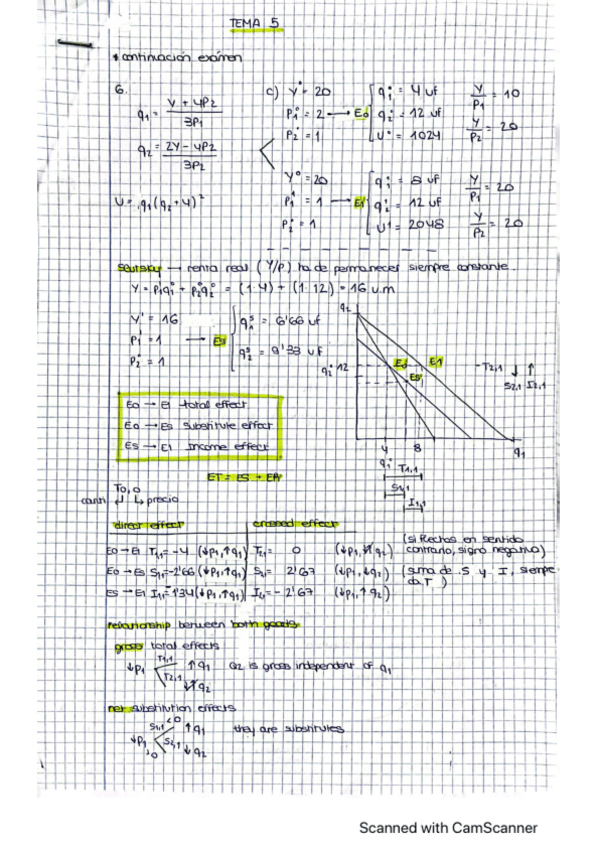 TEMA 5
continuación exámen
6.
q1 = (Y + 4P2) / 3P1
q2 = (2Y - 4P2) / 3P2
U = q1 (q2 + 4)²
c) Y° = 20
P1° = 2 → E0
P2° = 1
q1° = 4 uf
q2° = 12 uf
U° = 1024
Y/P1 = 10
Y/P2 = 20
Y° = 20
P1' = 1 → E1
P2° = 1
q1' = 8 uf
q2' = 12 uf
U' = 2048
Y/P1 = 20
Y/P2 = 20
Slutsky → renta real (Y/P) ha de permanecer siempre constante.
Y = P1q1° + P2q2° = (1·4) + (1·12) = 16 u.m
Y' = 16
P1' = 1 → Es
P2° = 1
q1s = 6'66 uf
q2s = 9'33 uf
q2
q2° 12
E0 E1
Es
T2,1
S2,1 I2,1
4 8 q1
q1° T1,1
S1,1
I1,1
E0 → E1 total effect
E0 → Es Substitute effect
Es → E1 Income effect
ET = ES + ER
T0,0
cant precio
direct effect crossed effect
E0→E1 T1,1 = -4 (↓P1, ↑q1) T2,1 = 0
E0→Es S1,1 = -2'66 (↓P1, ↑q1) S2,1 = 2'67 (↓P1, ↓q2)
Es→E1 I1,1 = -1'34 (↓P1, ↑q1) I2,1 = -2'67 (↓P1, ↑q2)
(si flechas en sentido
contrario, signo negativo)
(suma de S y I, siempre
da T)
relationship between both goods
gross total effects
↓P1 T1,1 ↑q1 Q2 is gross independent of q1
T2,1
net substitution effects
S1,1 <0 ↑q1 they are substitutes
↓P1 S2,1 ↓q2
>0
Scanned with CamScanner